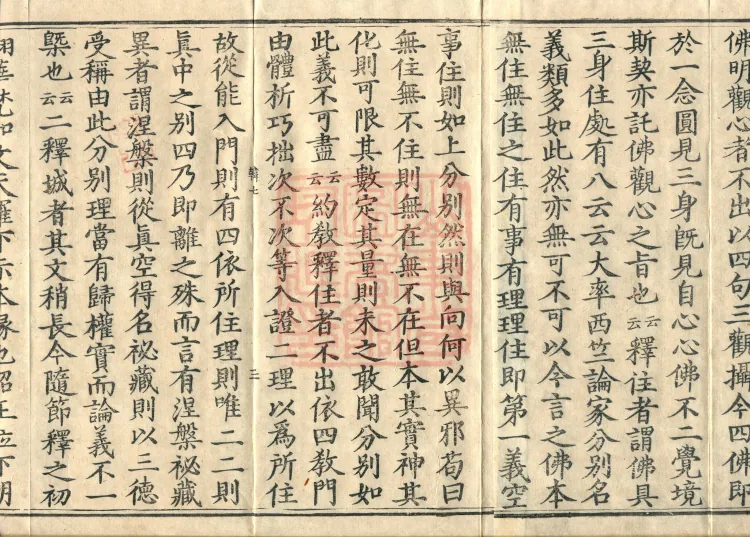 佛明觀心者不出以四句三觀攝今四佛即
於一念圓見三身旣見自心心佛不二覺境
斯契亦託佛觀心之旨也云云釋住者謂佛具
三身住處有八云云大率西竺論家分別名
義類多如此然亦無可不可以今言之佛本
無住無住之住有事有理理住即第一義空
事住則如上分別然則與向何以異邪荀曰
無住無不住則無在無不在但本其實神其
化則可限其數定其量則未之敢聞分別如
此義不可盡云云約敎釋住者不出依四敎門
由體析巧拙次不次等入證二理以爲所住
故從能入門則有四依所住理則唯二二則
眞中之別四乃即離之殊而言有涅槃祕藏
異者謂涅槃則從眞空得名祕藏則以三德
受稱由此分別理當有歸權實而論義不一
槩也云云二釋城者其文稍長今隨節釋之初